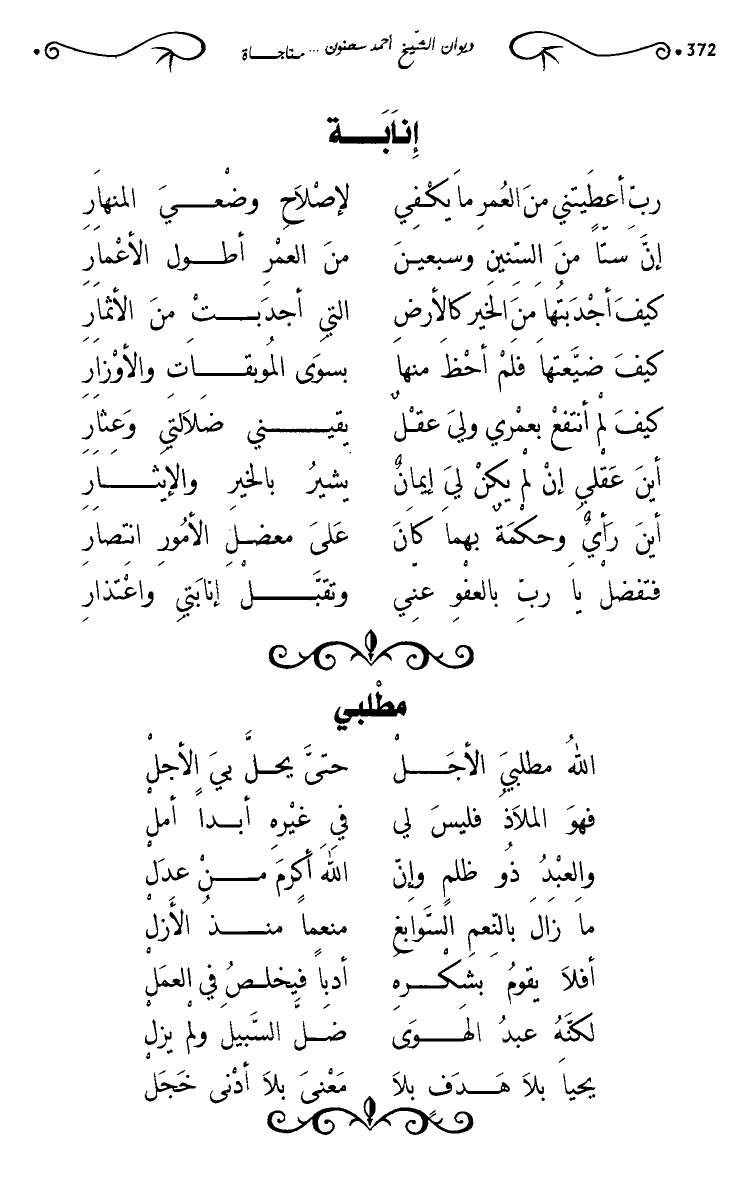 372 ديوان الشيخ أحمد سحنون ... مناجاة
إِنَابَة
ربِّ أعطَيتني منَ العُمرِ ما يكْفِي لإصْلاَحِ وضْعيَ المنهارِ
إنَّ ستّاً منَ السّنينِ وسبعينَ منَ العمْرِ أطول الأعْمارِ
كيفَ أجْدَبتُها منَ الخيرِ كالأرضِ التي أجدَبتْ منَ الأثمارِ
كيفَ ضيَّعتها فلمْ أحْظَ منها بسوَى المُوبقاتِ والأوْزارِ
كيفَ لمْ أنتفعْ بعمْري وليَ عقلٌ يقيني ضلاَلتي وَعِثارِ
أينَ عَقْلي إنْ لمْ يكنْ ليَ إيمانٌ يشيرُ بالخيرِ والإيثارِ
أينَ رَأيٌ وحكمَةٌ بهما كانَ عَلىَ معضلِ الأمُورِ انتصارِ
فتفضلْ يا ربِّ بالعفْوِ عنّي وتقبَّلْ إنابَتي واعْتذارِ
مطْلبي
اللهُ مطلبيَ الأجَلْ حتىَّ يحلَّ بيَ الأجلْ
فهوَ الملاَذُ فليسَ لي في غيْرِهِ أبداً أملْ
والعبْدُ ذُو ظلمٍ وإنّ الله أكرمَ منْ عدَلْ
ما زالَ بالنّعمِ السَّوابغِ منعماً منذُ الأَزلْ
أفلاَ يقومُ بشكْرهِ أدباً فيخلصُ في العمَلْ
لكنَّهُ عبدُ الهوَى ضلَّ السَّبيلَ ولمْ يزلْ
يحيا بلاَ هَدَفٍ بلاَ مَعْنىَ بلاَ أدْنى خَجَلْ